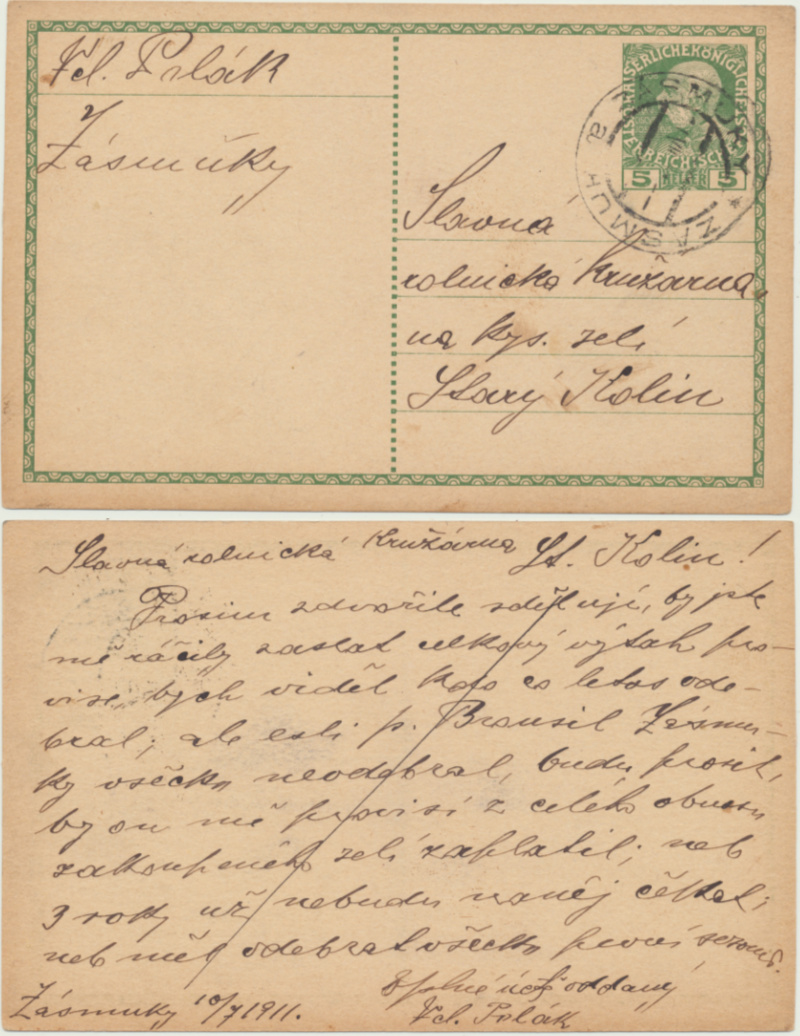 Vcl. Polák
Zásmuky
KAISERLICHE KÖNIGLICHE ÖSTERREICHISCHE
5 HELLER 5
ZÁSMUKY
a
ZÁSMUK
Slavná
rolnická Kružárna
na kys. zelí
Starý Kolín
Slavná rolnická Kružárna St. Kolín!
Prosim zdvořile sděluji, by jste
mě ráčily zaslat celkový výtah pro-
vise, bych viděl kdo co letos ode-
bral, ale esli p. Brousil Zásmu-
ky všecko neodebral, budu prosit,
by on mě provisi z celého obnosu
zakoupeného zelí zaplatil; neb
3 roky už nebudu naněj čekat,
neb měl odebrat všecko první sezonu.
V plné úctě oddaný
Zásmuky 10/7 1911. Vcl. Polák